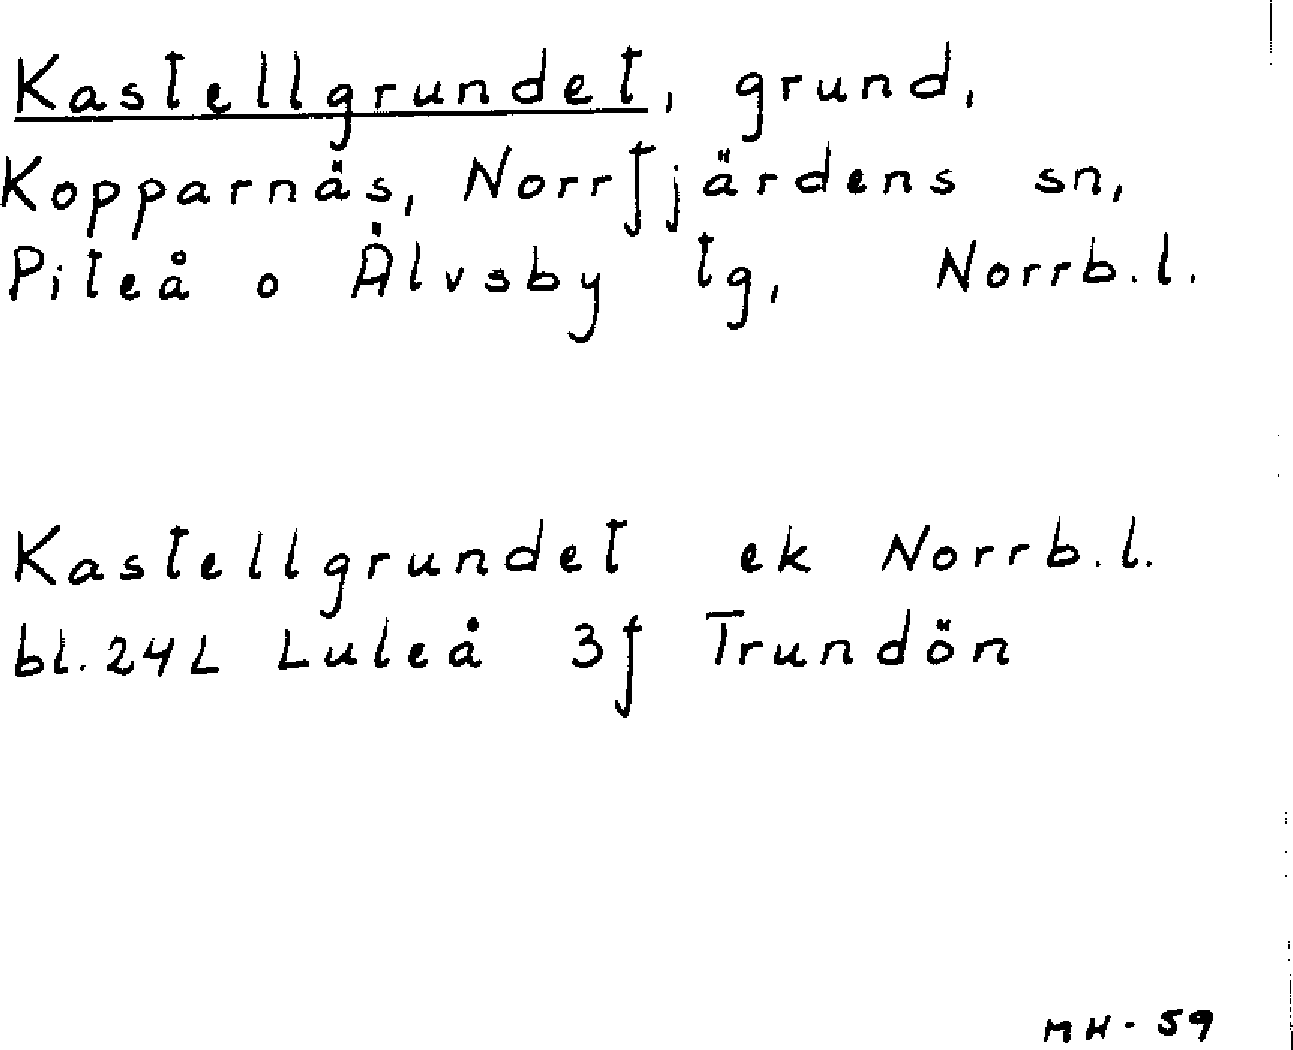 Kastellgrundet, grund,
Kopparnäs, Norrfjärdens sn,
Piteå o Älvsby tg, Norrb.l.
Kastellgrundet ek Norrb.l.
bl. 24L Luleå 3f Trundön
MH-59